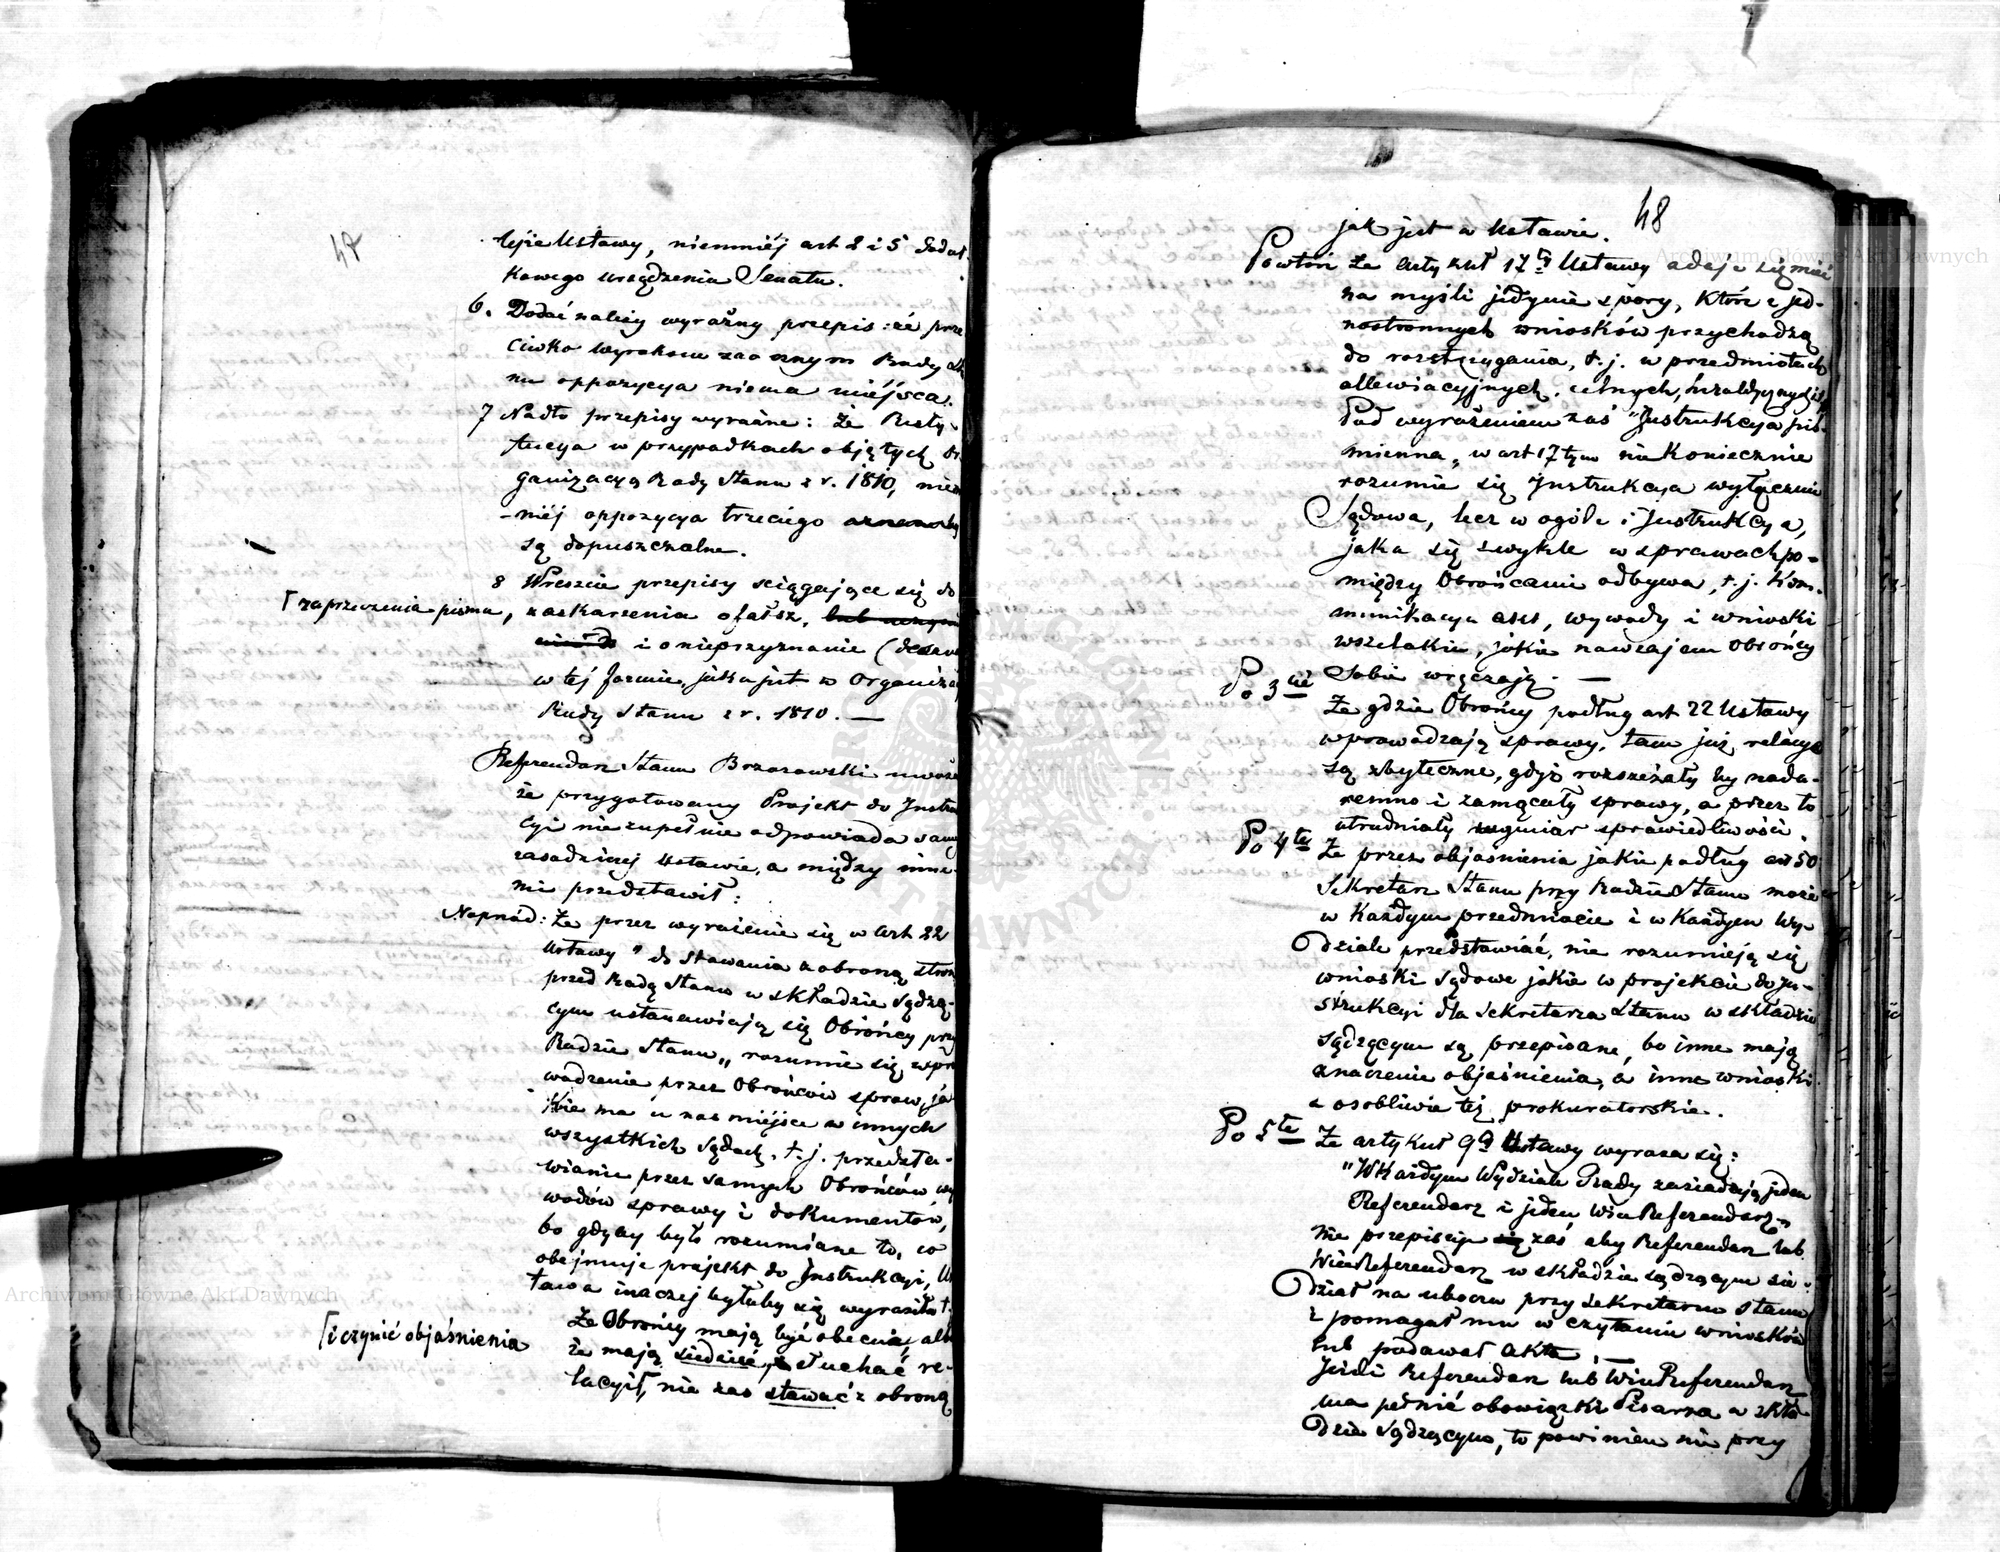 47
tejże Ustawy, niemniéj art 2 i 5 dodat-
kowego urządzenia Senatu.
6. Dodać należy wyraźny przepis: że prze
ciwko wyrokom zaocznym Rady Sta
nu oppozycya niema miéjsca.
7 Nadto przepisy wyraźne: że Resty-
tucya w przypadkach objętych Or
ganizacyą Rady Stanu z r. 1810, niem
-niéj oppozycya trzeciego
są dopuszczalne.
8 Wreszcie przepisy sciągające się do
⌈zaprzeczenia pisma, zaskarżenia o fałsz,
i o nieprzyznanie (desave
w téj formie, jaka jest w Organizac
Rady Stanu z r. 1810. —
Referendarz Stanu Brzozowski
że przygotowany Projekt do Instru
cyi nie zupełnie odpowiada samej
zasadniczej Ustawie, a między inne-
mi przedstawił:
Naprzód: Że przez wyrażenie się w art 22
Ustawy "do stawania z obroną stron
przed Radą Stanu w składzie Sądzą-
cym ustanawiają się Obrońcy przy
Radzie Stanu" rozumie się wpro
wadzenie przez Obrońców spraw, ja
kie ma u nas miéjsce w innych
wszystkich Sądach, t. j. przedsta-
wianie przez samych Obrońców wy
wodów sprawy i dokumentów,
bo gdyby było rozumiane to, co
obejmuje projekt do Instrukcyi, Us
tawa inaczej byłaby się wyraziła t.
że Obrońcy mają być obecni, albo
⌈i czynić objaśnienia
że mają siedzieć, słuchać re-
lacyi⌈, nie zaś stawać z obroną
48
jak jest w Ustawie.
Powtóre że artykuł 17ty Ustawy zdaje się mieć
na myśli jedynie spory, które z jed-
nostronnych wniosków przychodzą
do rozstrzygania, t. j. w przedmiotach
allewiacyjnych, celnych,
Pod wyrażeniem zaś "Instrukcya piś-
mienna" w art 17tym niekoniecznie
rozumie się Instrukcya wyłącznie
Sądowa, lecz w ogóle i Instrukcya,
jaka się zwykle w sprawach po-
między Obrońcami odbywa, t. j. kom-
munikacya akt, wywody i wnioski
wszelakie, jakie nawzajem Obrońcy
Sobie wręczają. —
Po 3cie Że gdzie Obrońcy podług art 22 Ustawy
wprowadzają sprawy, tam już relacye
są zbyteczne, gdyż rozszerzały by nada-
remno i zamącały sprawy, a przez to
utrudniały wymiar sprawiedliwości.
Po 4te Że przez objaśnienia jakie podług art 50
Sekretarz Stanu przy Radzie Stanu może
w każdym przedmiocie i w każdym Wy-
dziale przedstawiać, nie rozumieją się
wnioski sądowe jakie w projekcie do In-
strukcyi dla Sekretarza Stanu w składzie
sądzącym są przepisane, bo inne mają
znaczenie objaśnienia, a inne wnioski
a osobliwie téż prokuratorskie.
Po 5te Że artykuł 9ty Ustawy wyraża się:
"W każdym Wydziale Rady zasiadają jeden
Referendarz i jeden Wice Referendarz"
nie przepisuje zaś aby Referendarz lub
Wice Referendarz w składzie sądzącym sie-
dział na uboczu przy Sekretarzu Stanu
i pomagał mu w czytaniu wniosków
lub podawał akta. —
Jeżeli Referendarz lub Wice Referendarz
ma pełnić obowiązki Pisarza w skła-
dzie sądzącym, to powinien nie przy
Archiwum Główne Akt Dawnych
Archiwum Główne Akt Dawnych